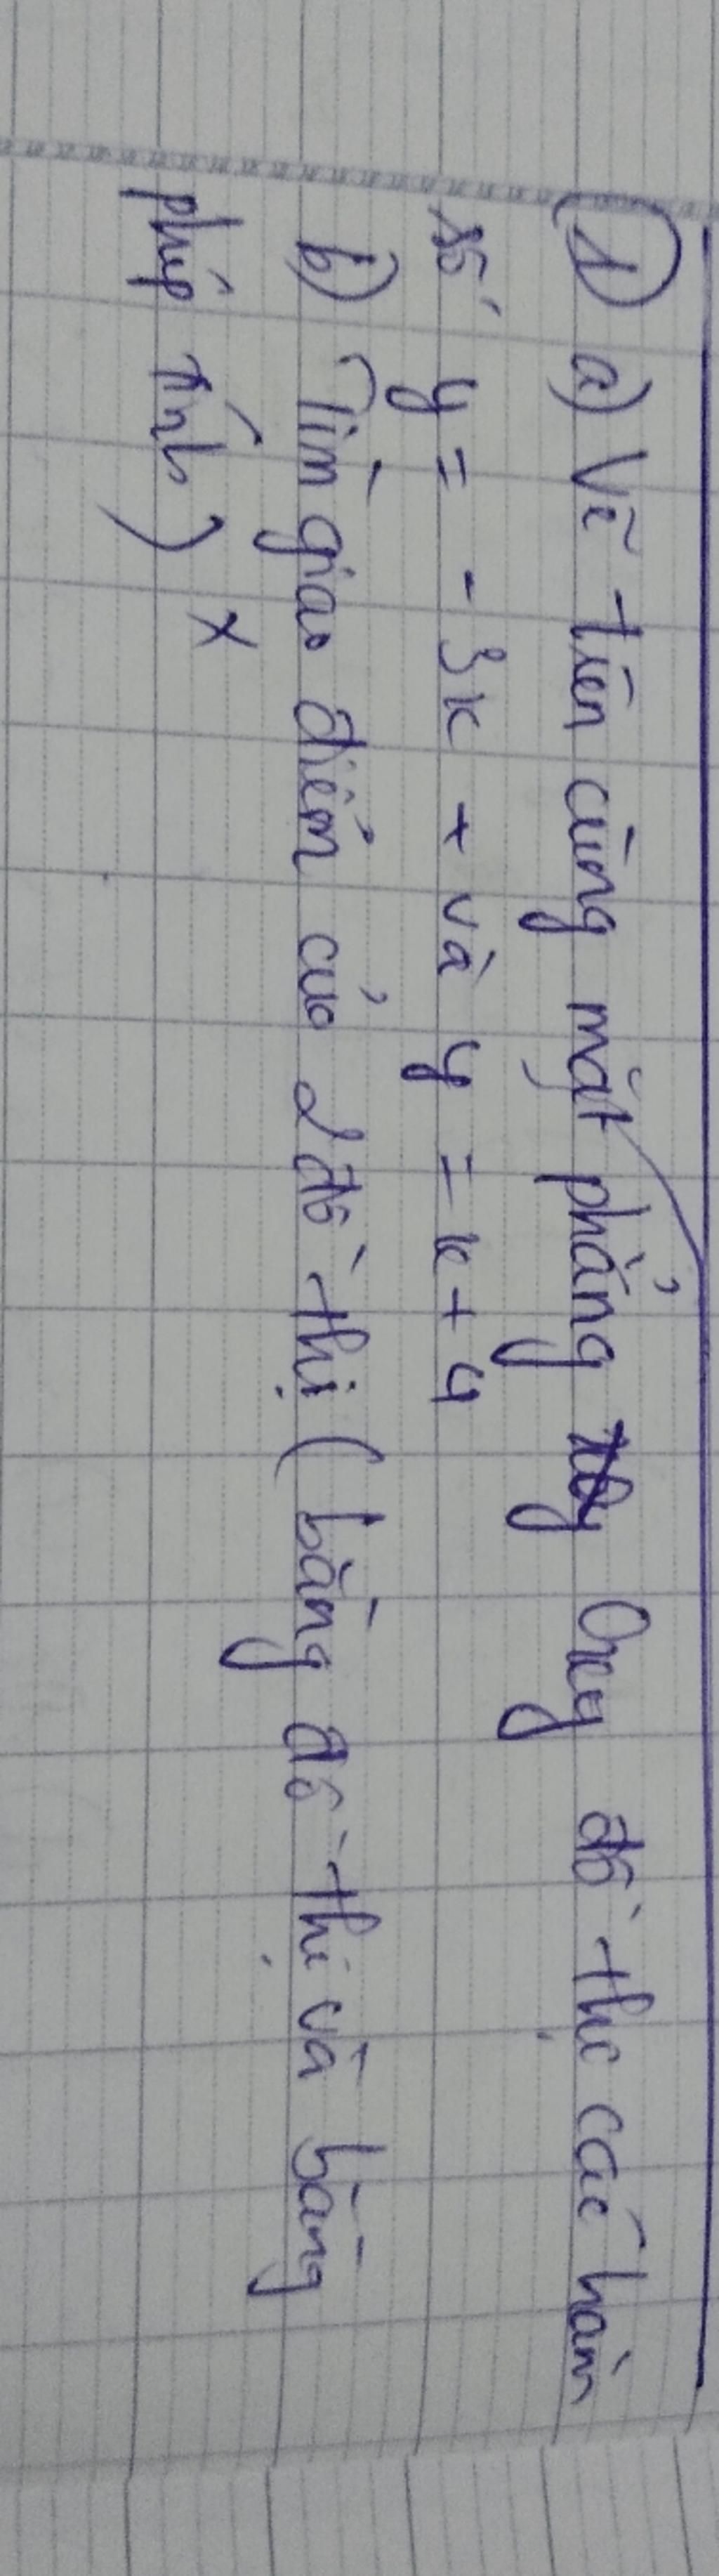 ① a) Vẽ trên cùng mặt phẳng Oxy đồ thị các hàm
số y = -3x + và y = x + 4
b) Tìm giao điểm của 2 đồ thị (bằng đồ thị và bằng
phép tính)
x